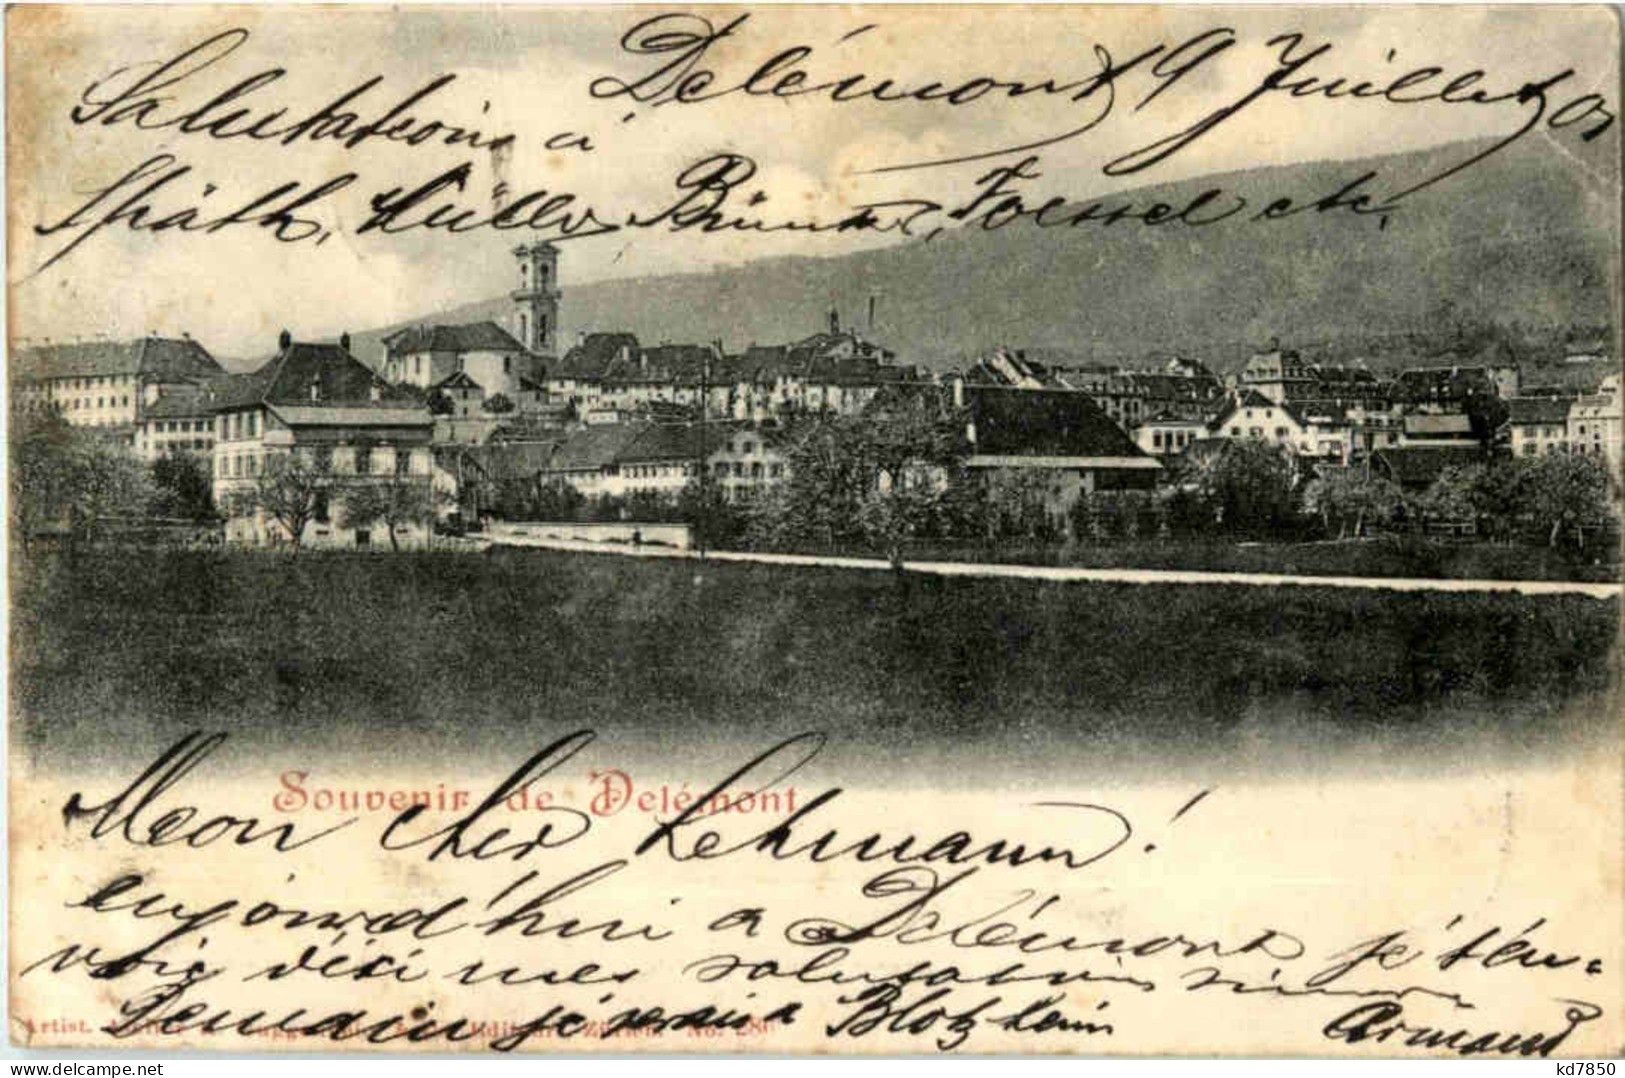 Delémont 9 Juillet 01
Salutations à
Späth, Müller, Etc.
Souvenir de Delémont
Mon cher Lehmann!
aujourd'hui a Delémont je t'en-
voie d'ici mes salutations
Demain je serai a Blotzheim Armand
Artist. Zürich No. 286
kd7850